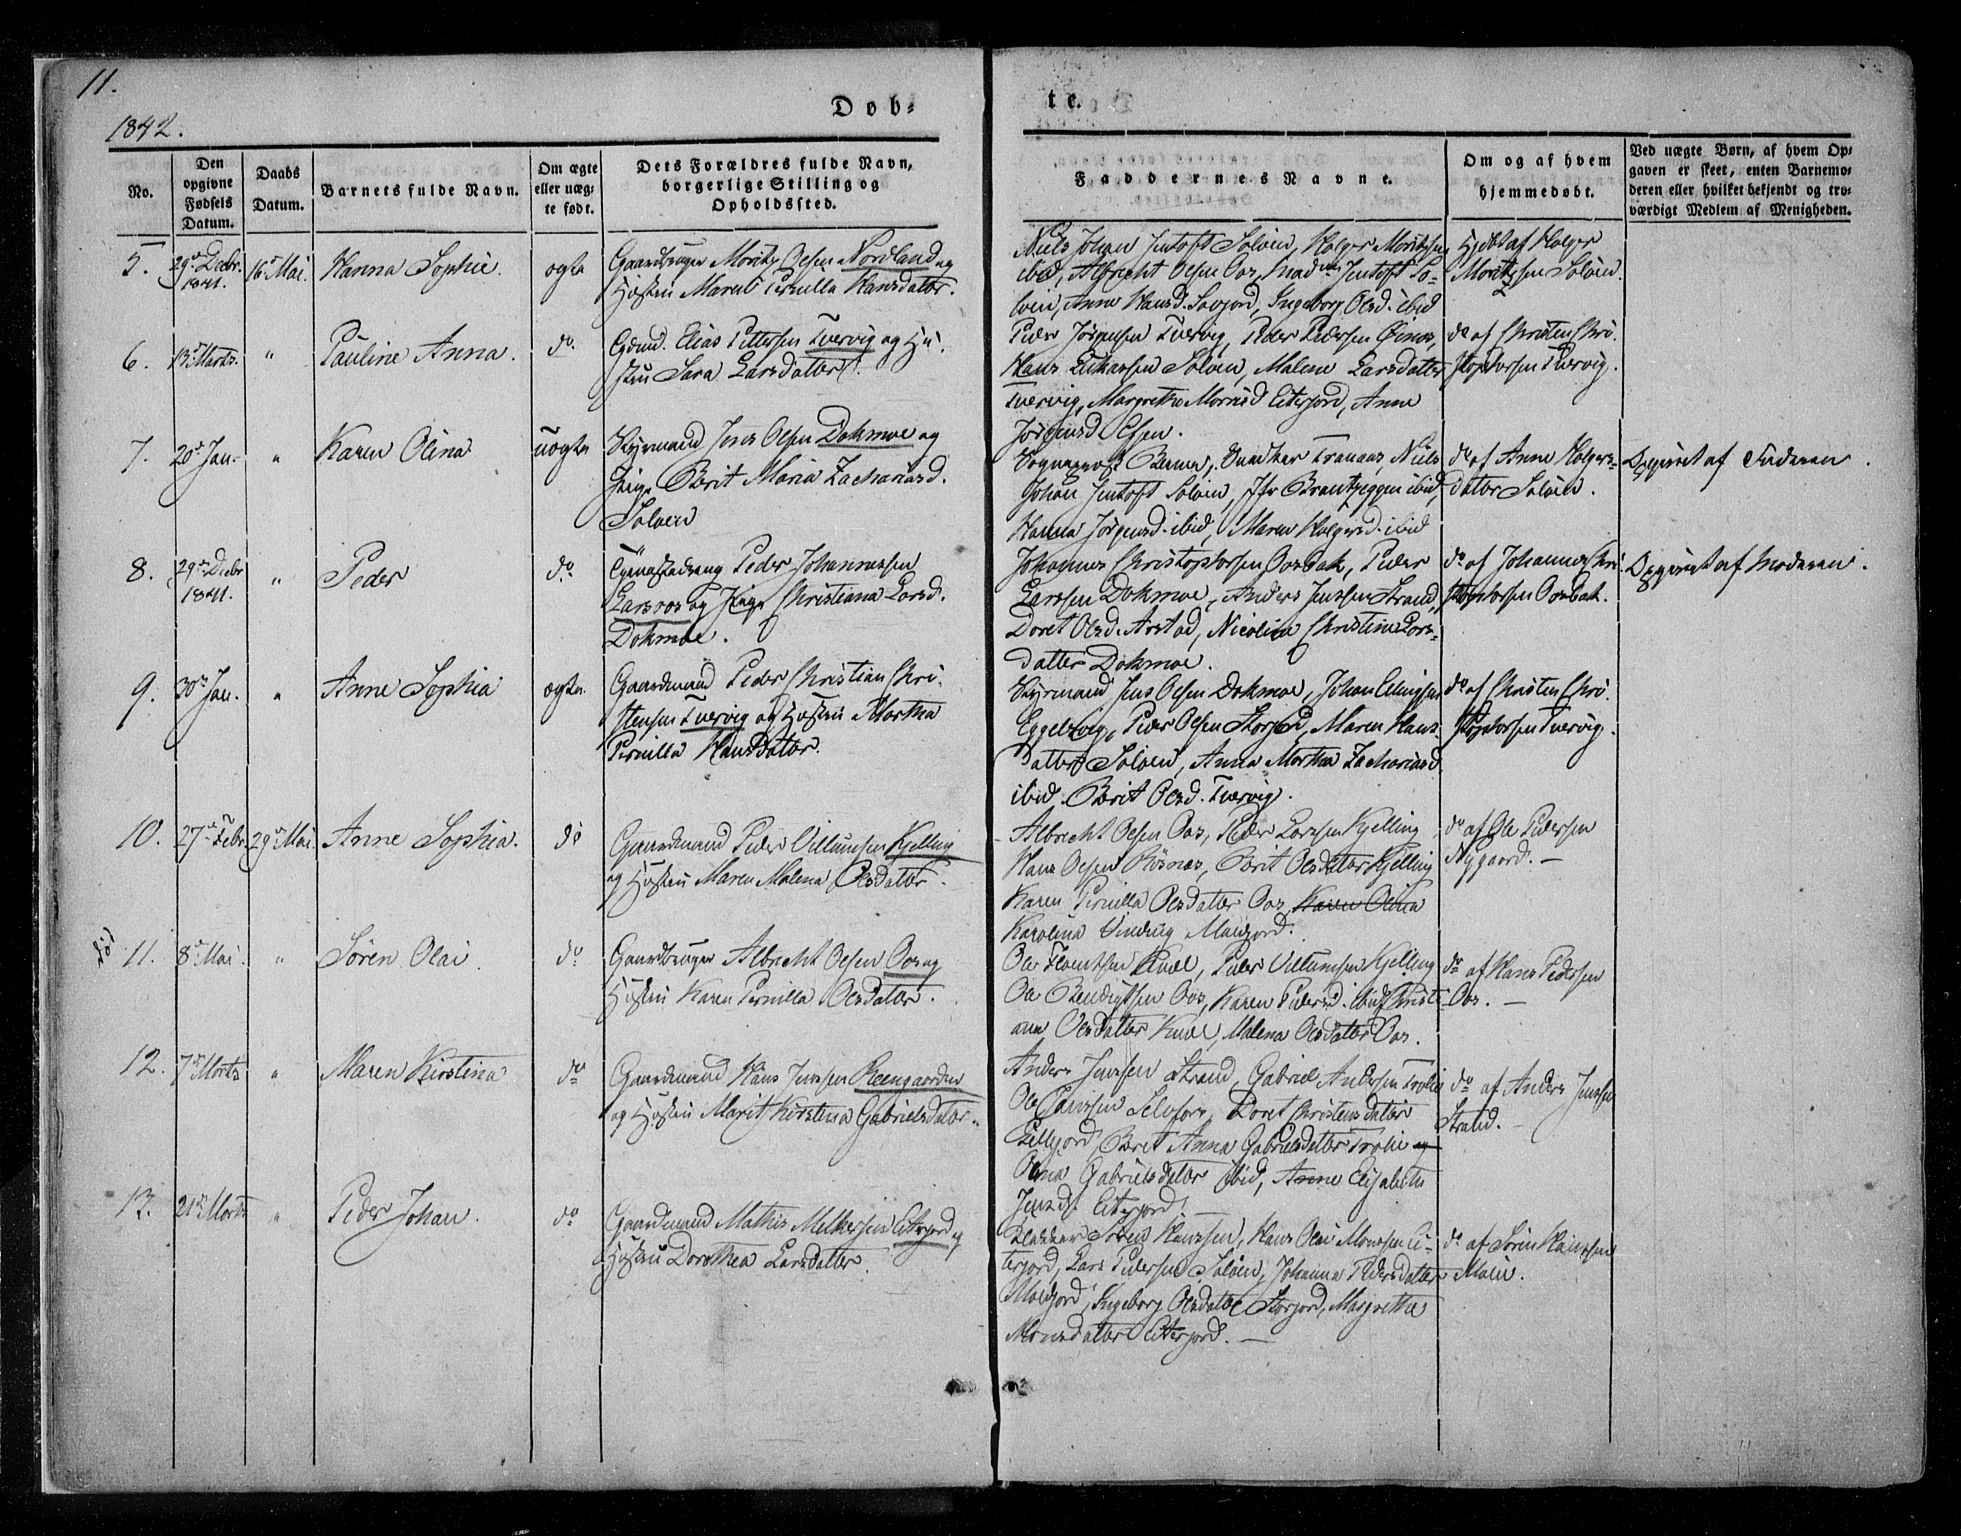 11.
1842.
Døb-
te.
No.
Den opgivne Fødsels Datum.
Daabs Datum.
Barnets fulde Navn.
Om ægte eller uæg- te født.
Dets Forældres fulde Navn, borgerlige Stilling og Opholdssted.
Faddernes Navne.
Om og af hvem hjemmedøbt.
Ved uægte Børn, af hvem Op- gaven er skeet, enten Barnemo- deren eller hvilket bekjendt og tro- værdigt Medlem af Menigheden.
5. 29de Decbr. 1841. 16de Mai. Hanna Sophie. ægte
Gaardbruger Moritz Olsen Nordland og
Hustru Maren Pernilla Hansdatter.
Niels Johan Jentoft Soløen, Holger Moritzsen
ibid, Albrecht Olsen Oos, Jentoft So-
løen, Anne Hansd. Ingeborg Olsd. ibid
Hjdøbt af Holger
Moritzsen Soløen.
6. 13de Marts. " Pauline Anna. do.
Gdmd. Elias Pettersen Tvervig og Hu-
stru Sara Larsdatter.
Peder Jørgensen Tvervig, Peder Pedersen
Hans Soløen, Malene Larsdatter
Tvervig, Margrethe Eiterjord, Anne
Jørgensd
do af Christen Chri-
stophersen Tvervig.
7. 20de Jan. " Karen Olina uægte
Styrmand Jens Olsen Dokmoe og
Pige Berit Maria Zachariasd.
Soløen
Niels
Johan Jentoft Soløen, Jfr ibid,
Hanna Jørgensd. ibid, Maren Holgersd. ibid
do af Anne Holgers-
datter Soløen.
Opgivet af Faderen.
8. 29de Decbr 1841. " Peder do.
Peder Johannessen
Larsos og Pige Christiana Larsd.
Dokmoe.
Johannes Christophersen Oosbak, Peder
Larssen Dokmoe, Anders Jenssen Strand,
Doret Olsd. Arstad, Nicolina Christine Lars-
datter Dokmoe.
do af Johannes Chri-
stophersen Oosbak.
Opgivet af Moderen.
9. 30te Jan. " Anne Sophia ægte.
Gaardmand Peder Christian Chri-
stensen Tvervig og Hustru Martha
Pernilla Hansdatter.
Styrmand Jens Olsen Dokmoe, Johan Ellingsen
Eggelsvig, Peder Olsen Storjord, Maren Hans-
datter Soløen, Anna Martha Zachariasd
ibid. Berit Olsd. Tvervig.
do af Christen Chri-
stophersen Tvervig.
10. 27de Febr. 29de Mai. Anne Sophia. do
Gaardmand Peder Villumsen Kjelling
og Hustru Maren Malena Olsdatter.
Albrecht Olsen Oos, Peder Larssen Kjelling
Hans Olsen Røsnes, Berit Olsdatter Kjelling
Karen Pernilla Olsdatter Oos, Karen Olina
Karolina Vindvig Moldjord.
do af Ole Pedersen
Nygaard. —
11. 8de Mai. " Søren Olai do.
Gaardbruger Albrecht Olsen Oos og
Hustru Karen Pernilla Olsdatter.
Ole Kvæl, Peder Villumsen Kjelling
Ole Bendigtsen Oos, Karen Pedersd. ibid Christi-
ana Olsdatter Kvæl, Malena Olsdatter Oos.
do af Hans Pedersen
Oos. —
12. 7de Marts " Maren Kirstina do
Gaardmand Hans Jenssen Reengaarden
og Hustru Marit Kirstina Gabrielsdatter.
Anders Jenssen Strand, Gabriel Andersen Trolie
Ole Selsfors, Doret Christensdatter
Berit Anna Gabrielsdatter Trolie og
Olina Gabrielsdatter ibid, Anne Elisabeth
Jensd. Eiterjord. —
do af Anders Jenssen
Strand. —
13. 21de Marts " Peder Johan. do
Gaardmand Mathis Melkersen Eiterjord og
Hustru Dorothea Larsdatter.
Klokker Søren Hanssen, Hans Olai Monssen Ei-
terjord, Lars Pedersen Soløen, Johanna Pedersdatter
Moldjord, Ingeborg Olsdatter Storjord, Margrethe
Monsdatter Eiterjord. —
do af Søren Hanssen
Moen.